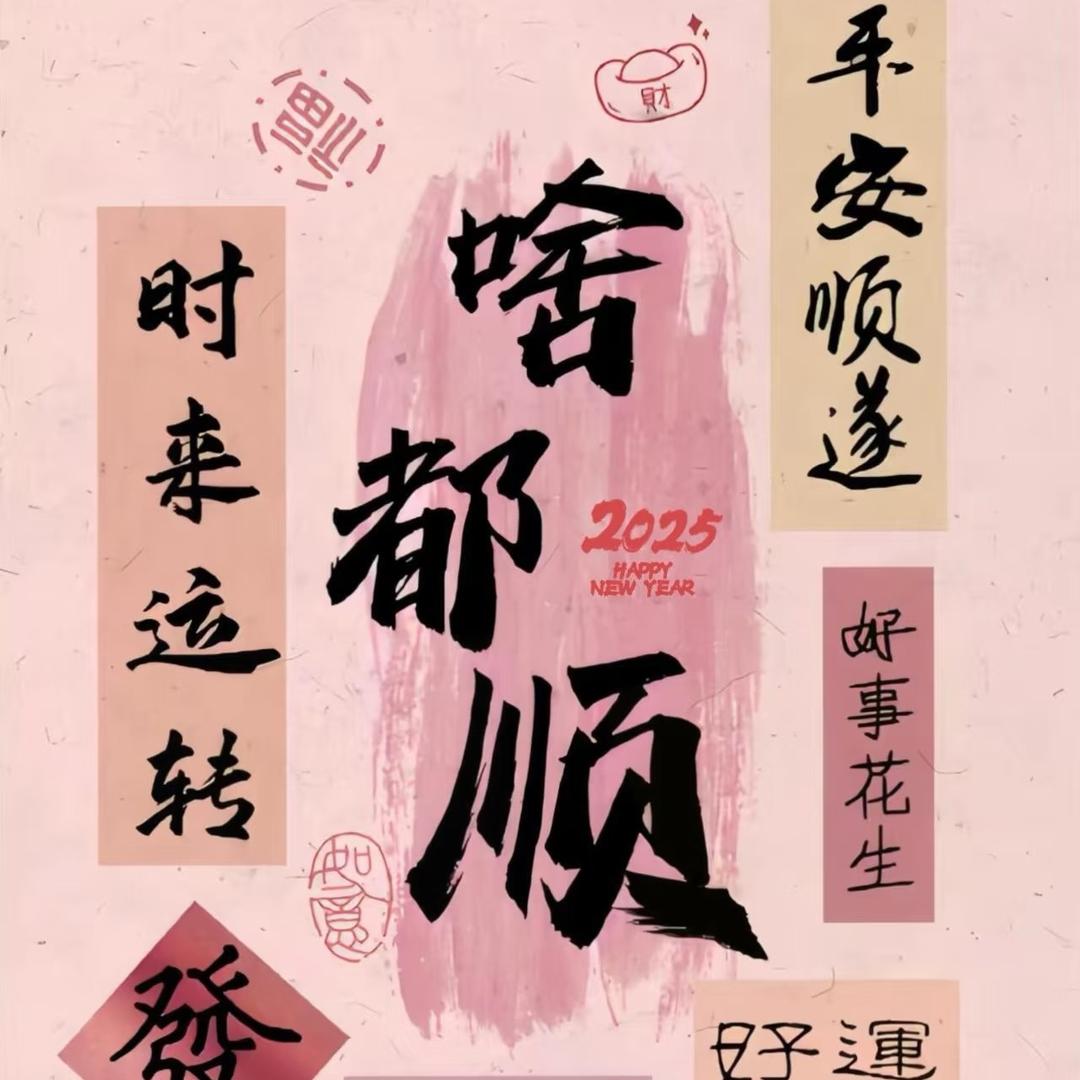 福
財
平安顺遂
时来运转
啥都顺
2025
HAPPY
NEW YEAR
好事花生
如意
發
好運